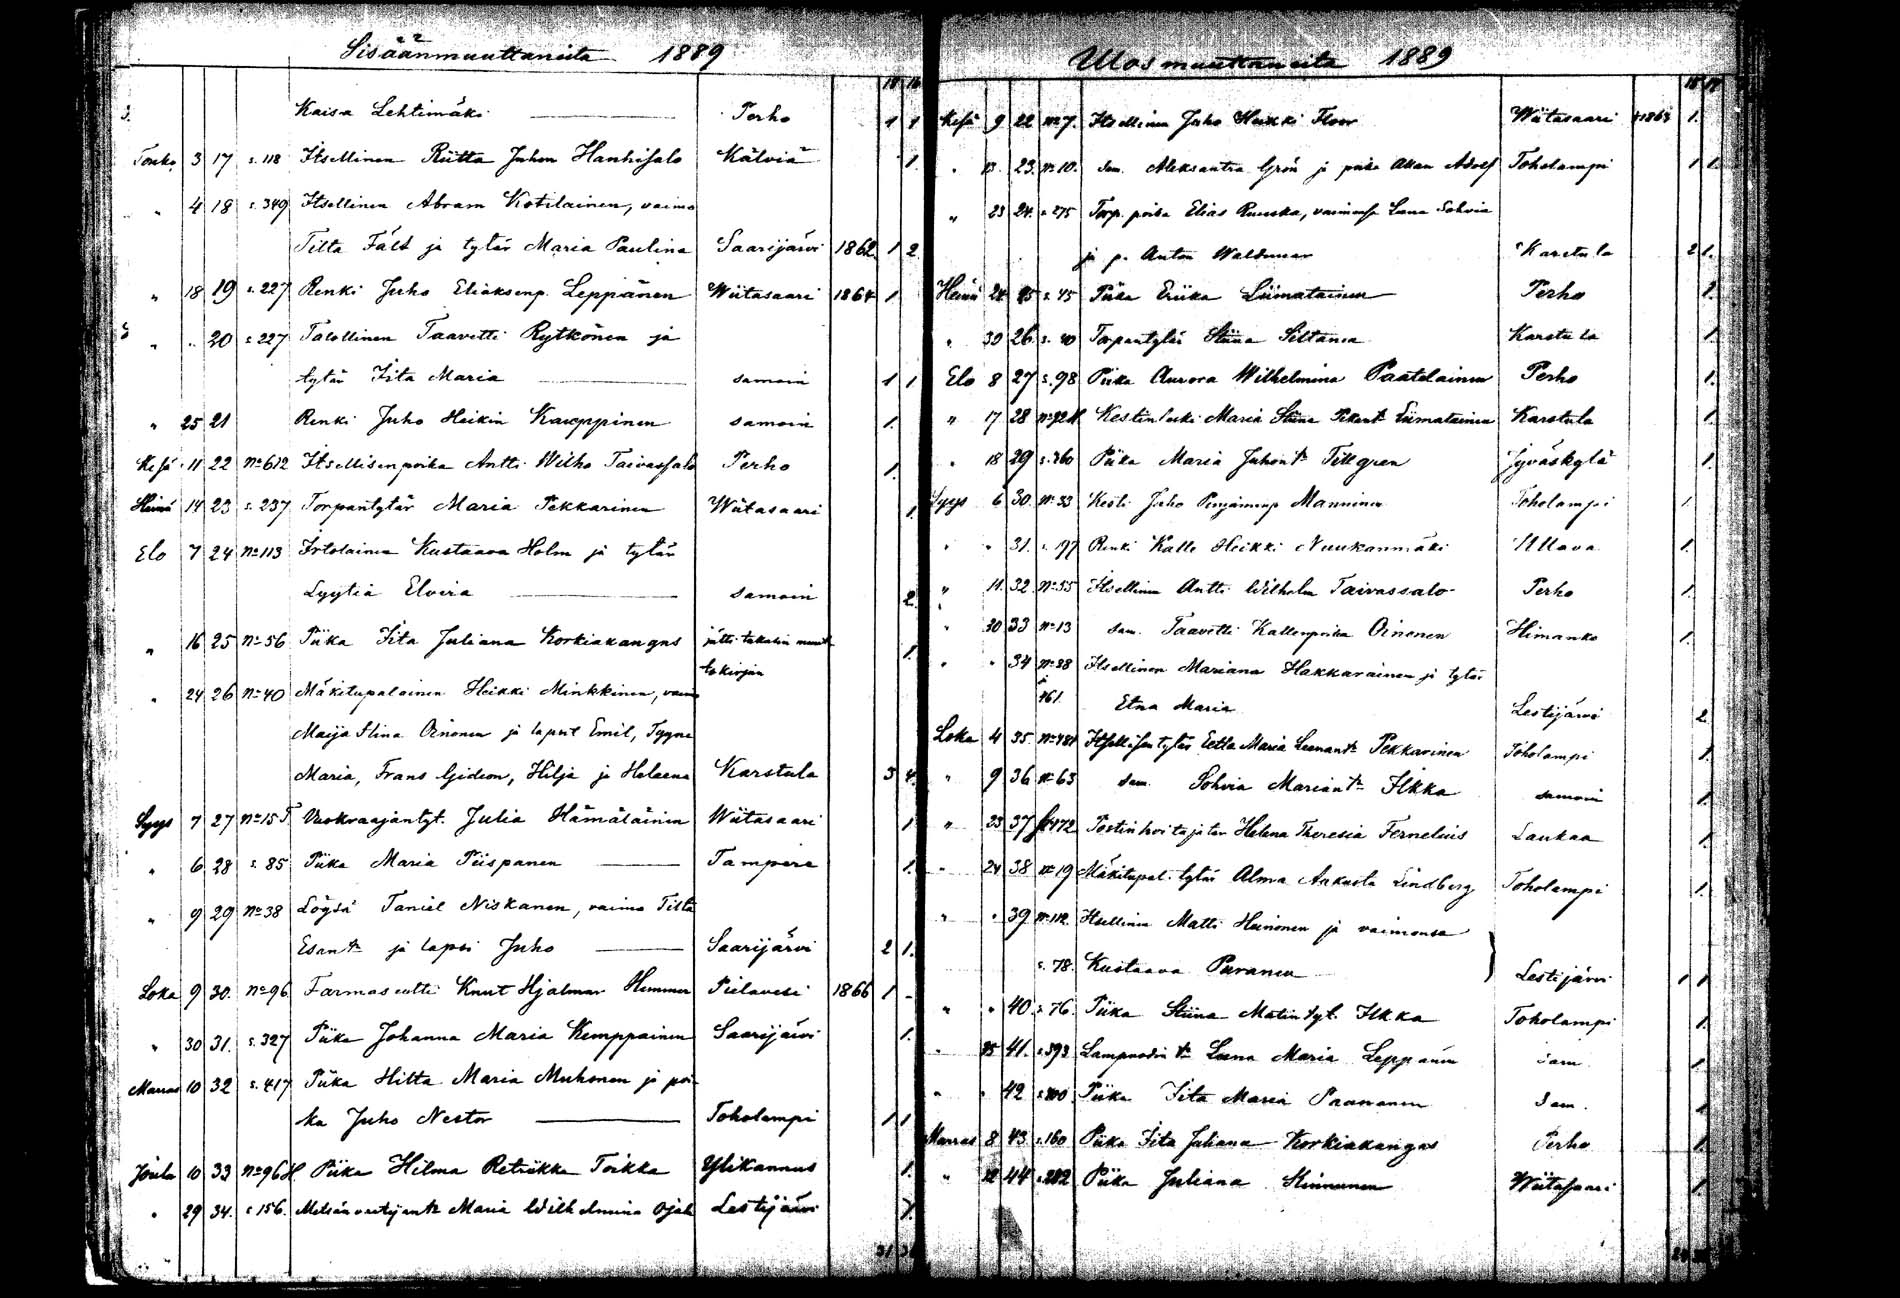 Sisäänmuuttaneita 1889
Kaisa Lehtimäki Perho 1 1
Touko 3 17 s. 118 Itsellinen Riitta Juhon Hanhisalo Kälviä 1.
" 4 18 s. 349 Itsellinen Abram Kotilainen, vaimo
Tilta Fält ja tytär Maria Paulina Saarijärvi 1862 1 2
" 18 19 s. 227 Renki Juho Eliaksenp. Leppänen Wiitasaari 1864 1
" " 20 s. 227 Talollinen Taavetti Rytkönen ja
tytär Iita Maria samoin 1 1
" 25 21 Renki Juho Heikin Kauppinen samoin 1.
Kesä 11 22 No 612 Itsellisenpoika Antti Wilho Taivassalo Perho 1.
Heinä 14 23 s. 237 Torpantytär Maria Pekkarinen Wiitasaari 1.
Elo 7 24 No 113 Irtolainen Kustaava Holm ja tytär
Lyytia Elvira samoin 2.
" 16 25 No 56 Piika Iita Juliana Korkiakangas jätti takasin muut- 1.
tokirjan
" 24 26 No 40 Mäkitupalainen Heikki Minkkinen, vaimo
Maija Stina Oinonen ja lapset Emil, Tyyne
Maria, Frans Gideon, Hilja ja Heleena Karstula 3 4.
Syys 7 27 No 15 T Vuokraajantyt. Julia Hämäläinen Wiitasaari 1
" 6 28 s. 85 Piika Maria Piispanen Tampere 1.
" 9 29 No 38 Löysä Taniel Niskanen, vaimo Tilta
Esant. ja lapsi Juho Saarijärvi 2 1.
Loka 9 30. No 96 Farmaseutti Knut Hjalmar Hummer Pielavesi 1866 1 -
" 30 31. s. 327 Piika Johanna Maria Kemppainen Saarijärvi 1.
Marras 10 32 s. 417 Piika Hilta Maria Muhonen ja poi-
ka Juho Nestor Toholampi 1 1
Joulu 10 33 No 96 H. Piika Hilma Retriikka Toikka Ylikannus 1.
" 29 34. s. 156. Metsänvartijantr Maria Wilhelmiina Ojala Lestijärvi 1.
Ulosmuuttaneita 1889
Kesä 9 22 No 7. Itsellinen Juho Heikki Floor Wiitasaari 1864 1.
" 13. 23. No 10. sam. Aleksantra Grön ja poika Allan Adolf Toholampi 1 1.
" 23 24. s. 275 Torp. poika Elias Ruuska, vaimonsa Lena Sohvia
ja p. Anton Waldemar Karstula 2 1.
Heinä 24 25 s. 45 Piika Eriika Liimatainen Perho 1.
" 30 26 s. 40 Torpantytär Stiina Siltanen Karstula 1.
Elo 8 27 s. 98 Piika Aurora Wilhelmina Paatelainen Perho 1.
" 17 28 Kestin leski Maria Stiina Liimatainen Karstula 1.
" 18 29 s. 360 Piika Maria Juhontr Tillgren Jyväskylä 1.
Syys 6 30. No 33 Kesti Juho Penjaminp Manninen Toholampi 1
" " 31. s. 197 Renki Kalle Heikki Nuukanmäki Ullava 1.
" 11. 32. No 55 Itsellinen Antti Wilhelm Taivassalo Perho 1.
" 30 33 No 13 sam. Taavetti Kallenpoika Oinonen Himanko 1.
" " 34 No 38 Itsellinen Mariana Hakkarainen ja tytär
461 Etna Maria Lestijärvi 2
Loka 4 35. Itsellisen tytär Eetla Maria Leenantr Pekkarinen Toholampi 1.
" 9 36 No 63 sam. Sohvia Mariantr Ilkka samoin 1.
" 23 37 472 Postinhoitajatar Helena Theresia Fernelius Laukaa 1.
" 24 38 No 19 Mäkitupal. tytär Alma Aukusta Lindberg Toholampi 1.
" " 39 No 112. Itsellinen Matti Heinonen ja vaimonsa
s. 78. Kustaava Puranen Lestijärvi 1 1
" " 40 s. 76. Piika Stiina Matintyt. Ilkka Toholampi 1.
" 25 41. s. 393 Lampuodintr Leena Maria Leppänen sam 1.
" " 42 s. 400 Piika Iita Maria Paananen sam. 1.
Marras 8 43 s. 160 Piika Iita Juliana Korkiakangas Perho 1.
" 12 44 s. 282 Piika Juliana Kinnunen Wiitasaari 1.